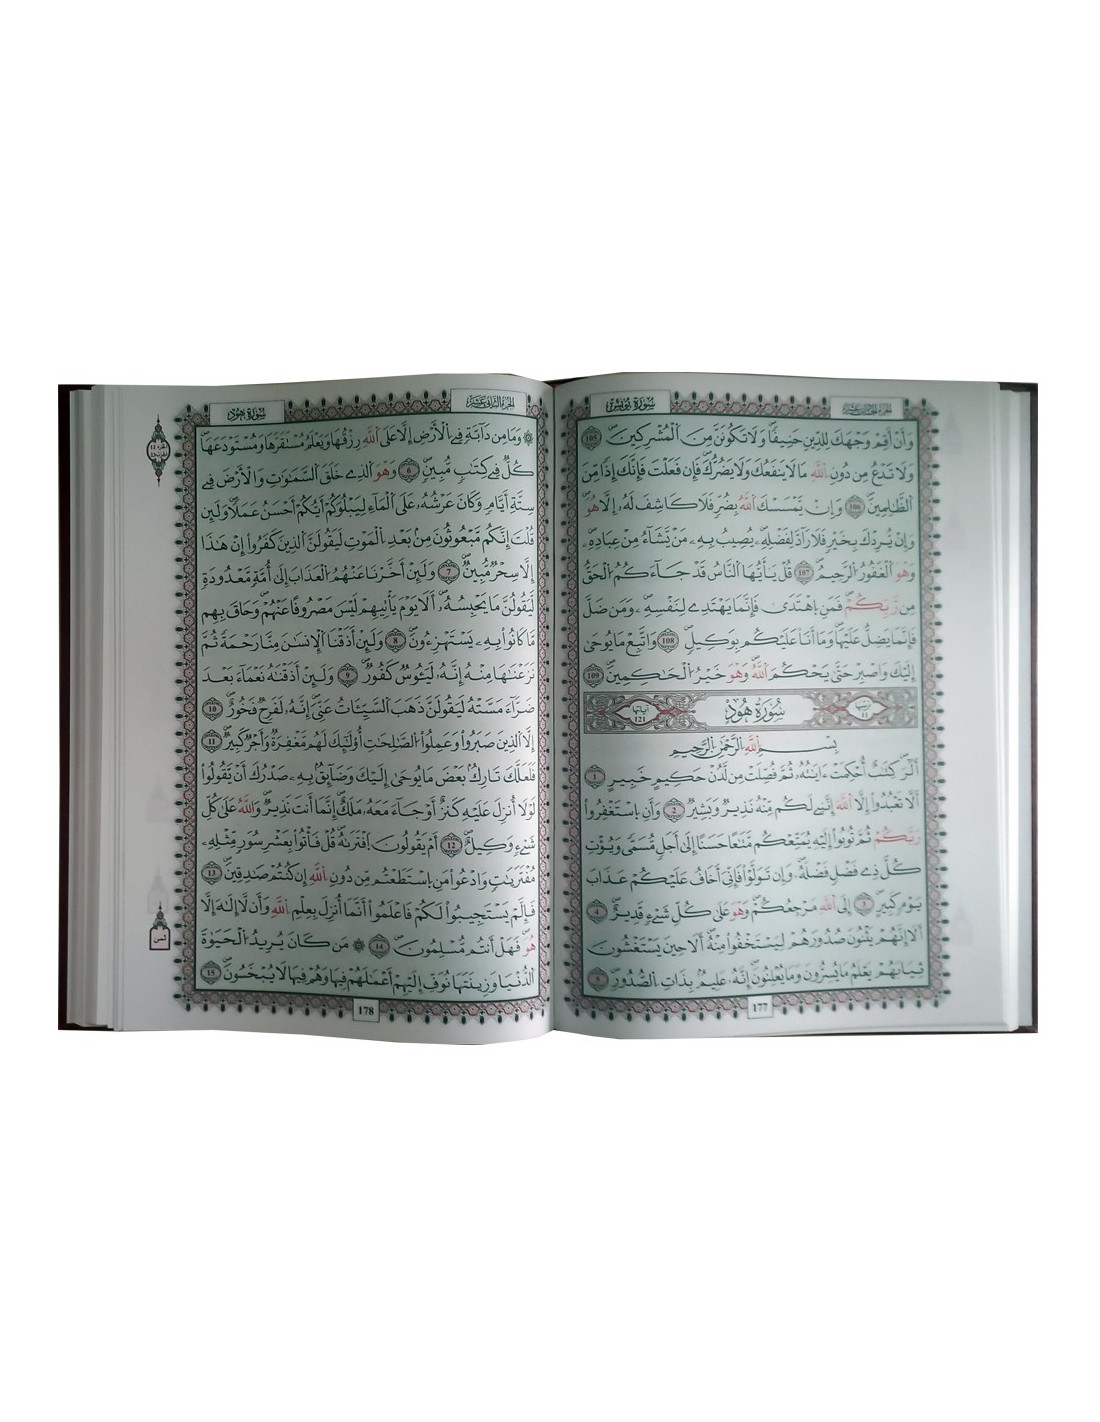 سورة يونس
وَأَنْ أَقِمْ وَجْهَكَ لِلدِّينِ حَنِيفًا وَلَا تَكُونَنَّ مِنَ الْمُشْرِكِينَ 105
وَلَا تَدْعُ مِن دُونِ اللَّهِ مَا لَا يَنفَعُكَ وَلَا يَضُرُّكَ فَإِن فَعَلْتَ فَإِنَّكَ إِذًا مِّنَ
الظَّالِمِينَ 106 وَإِن يَمْسَسْكَ اللَّهُ بِضُرٍّ فَلَا كَاشِفَ لَهُ إِلَّا هُوَ
وَإِنْ يُرِدْكَ بِخَيْرٍ فَلَا رَادَّ لِفَضْلِهِ يُصِيبُ بِهِ مَنْ يَشَاءُ مِنْ عِبَادِهِ
وَهْوَ الْغَفُورُ الرَّحِيمُ 107 قُلْ يَا أَيُّهَا النَّاسُ قَدْ جَاءَكُمُ الْحَقُّ
مِن رَّبِّكُمْ فَمَنِ اهْتَدَى فَإِنَّمَا يَهْتَدِي لِنَفْسِهِ وَمَن ضَلَّ
فَإِنَّمَا يَضِلُّ عَلَيْهَا وَمَا أَنَا عَلَيْكُم بِوَكِيلٍ 108 وَاتَّبِعْ مَا يُوحَى
إِلَيْكَ وَاصْبِرْ حَتَّى يَحْكُمَ اللَّهُ وَهْوَ خَيْرُ الْحَاكِمِينَ 109
ترتيبها 11 سُورَةُ هُودٍ آياتها 121
بِسْمِ اللَّهِ الرَّحْمَنِ الرَّحِيمِ
الَر كِتَابٌ أُحْكِمَتْ ءَايَاتُهُ ثُمَّ فُصِّلَتْ مِن لَّدُنْ حَكِيمٍ خَبِيرٍ 1
أَلَّا تَعْبُدُوا إِلَّا اللَّهَ إِنَّنِي لَكُم مِّنْهُ نَذِيرٌ وَبَشِيرٌ 2 وَأَنِ اسْتَغْفِرُوا
رَبَّكُمْ ثُمَّ تُوبُوا إِلَيْهِ يُمَتِّعْكُم مَّتَاعًا حَسَنًا إِلَى أَجَلٍ مُّسَمًّى وَيُؤْتِ
كُلَّ ذِي فَضْلٍ فَضْلَهُ وَإِن تَوَلَّوْا فَإِنِّيَ أَخَافُ عَلَيْكُمْ عَذَابَ
يَوْمٍ كَبِيرٍ 3 إِلَى اللَّهِ مَرْجِعُكُمْ وَهْوَ عَلَى كُلِّ شَيْءٍ قَدِيرٌ 4
أَلَا إِنَّهُمْ يَثْنُونَ صُدُورَهُمْ لِيَسْتَخْفُوا مِنْهُ أَلَا حِينَ يَسْتَغْشُونَ
ثِيَابَهُمْ يَعْلَمُ مَا يُسِرُّونَ وَمَا يُعْلِنُونَ إِنَّهُ عَلِيمٌ بِذَاتِ الصُّدُورِ 5
177
الجزء الثاني عشر
سورة هود
وَمَا مِن دَابَّةٍ فِي الْأَرْضِ إِلَّا عَلَى اللَّهِ رِزْقُهَا وَيَعْلَمُ مُسْتَقَرَّهَا وَمُسْتَوْدَعَهَا
كُلٌّ فِي كِتَابٍ مُّبِينٍ 6 وَهْوَ الَّذِي خَلَقَ السَّمَاوَاتِ وَالْأَرْضَ فِي
سِتَّةِ أَيَّامٍ وَكَانَ عَرْشُهُ عَلَى الْمَاءِ لِيَبْلُوَكُمْ أَيُّكُمْ أَحْسَنُ عَمَلًا وَلَئِن
قُلْتَ إِنَّكُم مَّبْعُوثُونَ مِنْ بَعْدِ الْمَوْتِ لَيَقُولَنَّ الَّذِينَ كَفَرُوا إِنْ هَذَا
إِلَّا سِحْرٌ مُّبِينٌ 7 وَلَئِنْ أَخَّرْنَا عَنْهُمُ الْعَذَابَ إِلَى أُمَّةٍ مَّعْدُودَةٍ
لَيَقُولُنَّ مَا يَحْبِسُهُ أَلَا يَوْمَ يَأْتِيهِمْ لَيْسَ مَصْرُوفًا عَنْهُمْ وَحَاقَ بِهِم
مَّا كَانُوا بِهِ يَسْتَهْزِءُونَ 8 وَلَئِنْ أَذَقْنَا الْإِنسَانَ مِنَّا رَحْمَةً ثُمَّ
نَزَعْنَاهَا مِنْهُ إِنَّهُ لَيَئُوسٌ كَفُورٌ 9 وَلَئِنْ أَذَقْنَاهُ نَعْمَاءَ بَعْدَ
ضَرَّاءَ مَسَّتْهُ لَيَقُولَنَّ ذَهَبَ السَّيِّئَاتُ عَنِّيَ إِنَّهُ لَفَرِحٌ فَخُورٌ 10
إِلَّا الَّذِينَ صَبَرُوا وَعَمِلُوا الصَّالِحَاتِ أُوْلَئِكَ لَهُم مَّغْفِرَةٌ وَأَجْرٌ كَبِيرٌ 11
فَلَعَلَّكَ تَارِكٌ بَعْضَ مَا يُوحَى إِلَيْكَ وَضَائِقٌ بِهِ صَدْرُكَ أَنْ يَقُولُوا
لَوْلَا أُنزِلَ عَلَيْهِ كَنزٌ أَوْ جَاءَ مَعَهُ مَلَكٌ إِنَّمَا أَنتَ نَذِيرٌ وَاللَّهُ عَلَى كُلِّ
شَيْءٍ وَكِيلٌ 12 أَمْ يَقُولُونَ افْتَرَاهُ قُلْ فَأْتُوا بِعَشْرِ سُوَرٍ مِّثْلِهِ
مُفْتَرَيَاتٍ وَادْعُوا مَنِ اسْتَطَعْتُم مِّن دُونِ اللَّهِ إِن كُنتُمْ صَادِقِينَ 13
فَإِلَّمْ يَسْتَجِيبُوا لَكُمْ فَاعْلَمُوا أَنَّمَا أُنزِلَ بِعِلْمِ اللَّهِ وَأَن لَّا إِلَهَ إِلَّا
هُوَ فَهَلْ أَنتُم مُّسْلِمُونَ 14 مَن كَانَ يُرِيدُ الْحَيَاةَ
الدُّنْيَا وَزِينَتَهَا نُوَفِّ إِلَيْهِمْ أَعْمَالَهُمْ فِيهَا وَهُمْ فِيهَا لَا يُبْخَسُونَ 15
178
ثمن